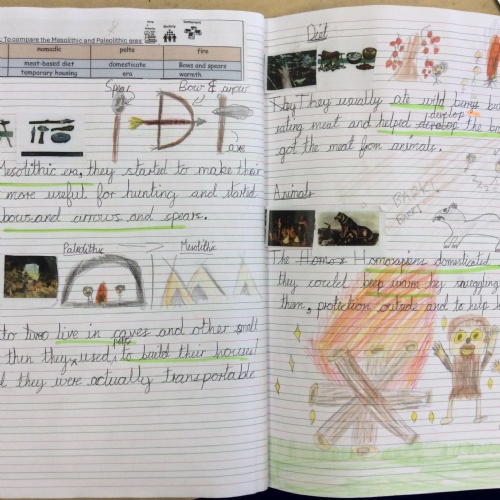 : To compare the Mesolithic and Paleolithic eras
nomadic pelts fire
meat-based diet domesticate Bows and spears
temporary housing era warmth
Spear Bow & arrow
axe
Mesolithic era, they started to make their
more useful for hunting and started
bows and arrows and spears.
Paleolithic Mesolithic
to two live in caves and other small
then they used pelts to build their houses!
they were actually transportable
Diet
They usually ate wild berry
eating meat and helped develop develop the
got the meat from animals.
Animals
BARK!
BARK!
The Homo s Homosapiens domesticated
they could keep warm by snuggling
them, protection outside and to help